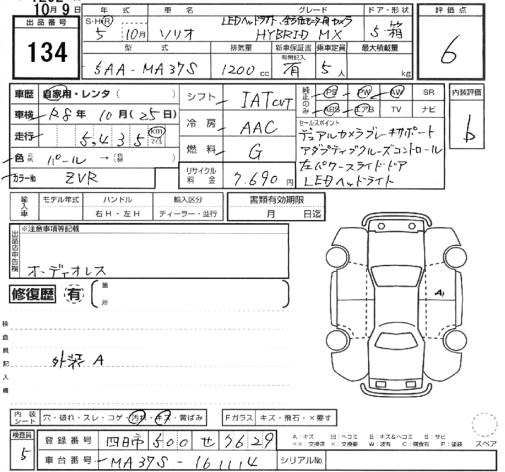 10月 9日
出品番号
134
年式 車名 グレード ドア・形状
S・H・R 5 10月 ソリオ HYBRID MX 5 箱
LEDヘッドライト 全方位モニター用カメラ
型式 排気量 新車保証書 乗車定員 最大積載量
5AA-MA37S 1200cc 有無記入 有 5人 kg
評価点
6
車歴 自家用・レンタ ( )
車検 R8年 10月(25日)
走行 5,435 km マイル
色 パール → ( )
カラーNo ZVR
シフト IAT CVT
冷房 AAC
燃料 G
リサイクル料金 7.690円
純正のみ PS PW AW SR
ABS エアB TV ナビ
セールスポイント
デュアルカメラブレーキサポート
アダプティブクルーズコントロール
左パワースライドドア
LEDヘッドライト
内装評価
b
輸入車 モデル年式 ハンドル 輸入区分
右H・左H ディーラー・並行
書類有効期限
月 日迄
出品店申告欄
※注意事項等記載
オーディオレス
修復歴 有 箇所
検査員記入欄
外装 A
A1
内装シート 穴・破れ・スレ・コゲ・汚れ・キズ・黄ばみ
Fガラス キズ・飛石・×要す
検査員 5
登録番号 四日市 500 せ 7629
車台番号 MA37S-161114 シリアルNo.
A:キズ U:ヘコミ B:キズ&ヘコミ S:サビ
××:交換済 ×:交換要 W:波有 C:腐食有 P:塗装
スペア